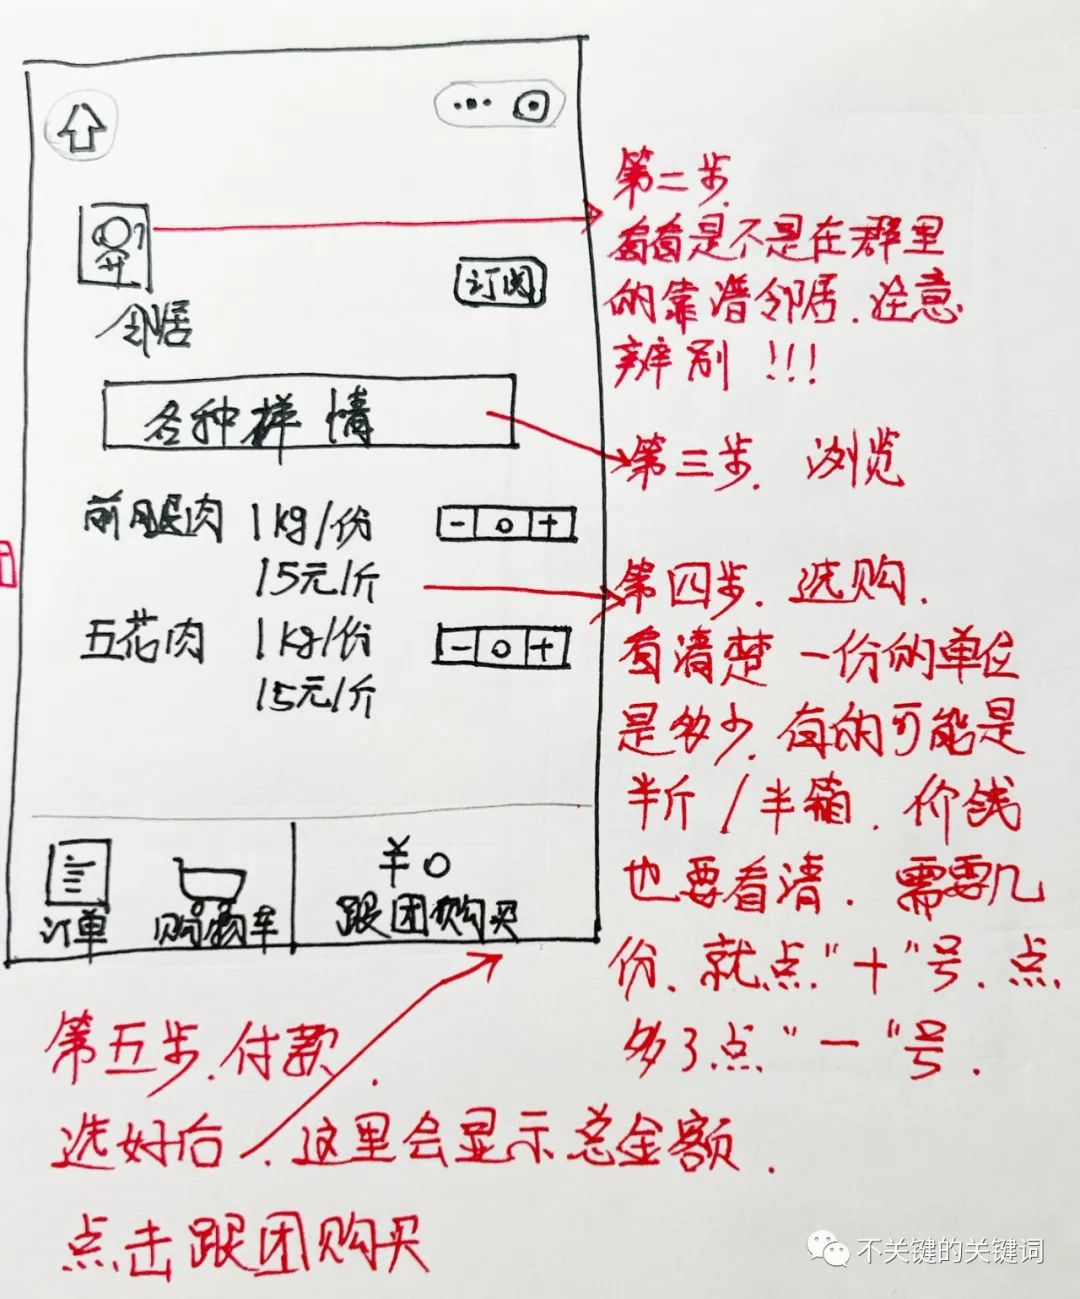 第二步.
看看是不是在群里
的靠谱邻居.注意
辨别!!!
订阅
邻居
各种样情
第三步.浏览
前腿肉 1kg/份 - 0 +
15元/斤
五花肉 1kg/份 - 0 +
15元/斤
第四步.选购.
看清楚一份的单位
是多少.有的可能是
半斤/半箱.价钱
也要看清.需要几
份.就点"+"号.点
多了点"一"号.
¥0
订单 购物车 跟团购买
第五步.付款.
选好后.这里会显示总金额.
点击跟团购买
不关键的关键词